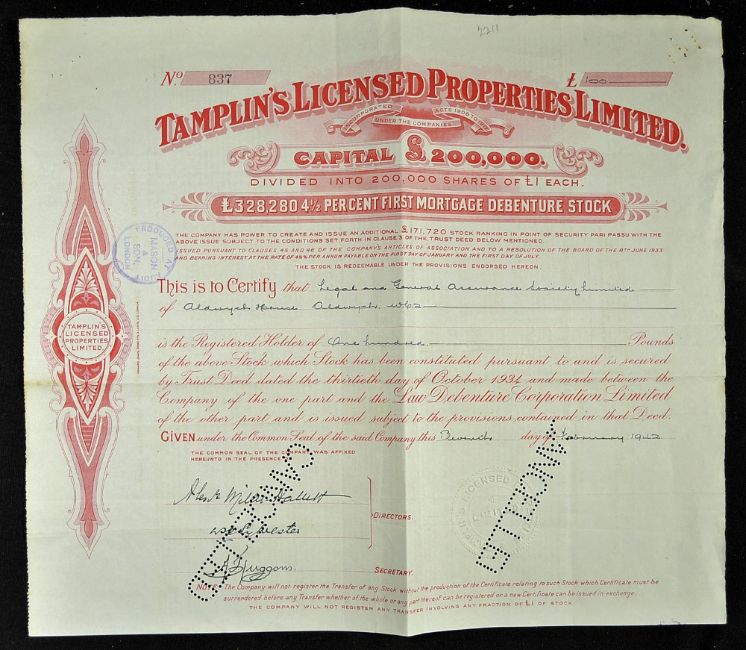 2211
No. 837 £ 100
TAMPLIN'S LICENSED PROPERTIES LIMITED.
INCORPORATED UNDER THE COMPANIES ACTS
CAPITAL £200,000.
DIVIDED INTO 200,000 SHARES OF £1 EACH.
£328,280 4½ PERCENT FIRST MORTGAGE DEBENTURE STOCK
THE COMPANY HAS POWER TO CREATE AND ISSUE AN ADDITIONAL £171,720 STOCK RANKING IN POINT OF SECURITY PARI PASSU WITH THE
ABOVE ISSUE SUBJECT TO THE CONDITIONS SET FORTH IN CLAUSE 3 OF THE TRUST DEED BELOW MENTIONED.
ISSUED PURSUANT TO CLAUSES 45 AND 46 OF THE COMPANY'S ARTICLES OF ASSOCIATION AND TO A RESOLUTION OF THE BOARD OF THE 8TH JUNE 1933
AND BEARING INTEREST AT THE RATE OF 4½% PER ANNUM PAYABLE ON THE FIRST DAY OF JANUARY AND THE FIRST DAY OF JULY.
THE STOCK IS REDEEMABLE UNDER THE PROVISIONS ENDORSED HEREON.
PRODUCED AT
MASON
& SON
LONDON
This is to Certify that Legal and General Assurance Society Limited
of Aldwych House Aldwych WC2
TAMPLIN'S
LICENSED
PROPERTIES
LIMITED.
is the Registered Holder of One hundred Pounds
of the above Stock which Stock has been constituted pursuant to and is secured
by Trust Deed dated the thirtieth day of October 1924 and made between the
Company of the one part and the Law Debenture Corporation Limited
of the other part and is issued subject to the provisions contained in that Deed.
GIVEN under the Common Seal of the said Company this Seventh day of February 1942
THE COMMON SEAL OF THE COMPANY WAS AFFIXED
HEREUNTO IN THE PRESENCE OF
DIRECTORS.
SECRETARY.
CANCELLED
NOTE. The Company will not register the Transfer of any Stock without the production of the Certificate relating to such Stock which Certificate must be
surrendered before any Transfer whether of the whole or any part thereof can be registered or a new Certificate can be issued in exchange.
THE COMPANY WILL NOT REGISTER ANY TRANSFER INVOLVING ANY FRACTION OF £1 OF STOCK.